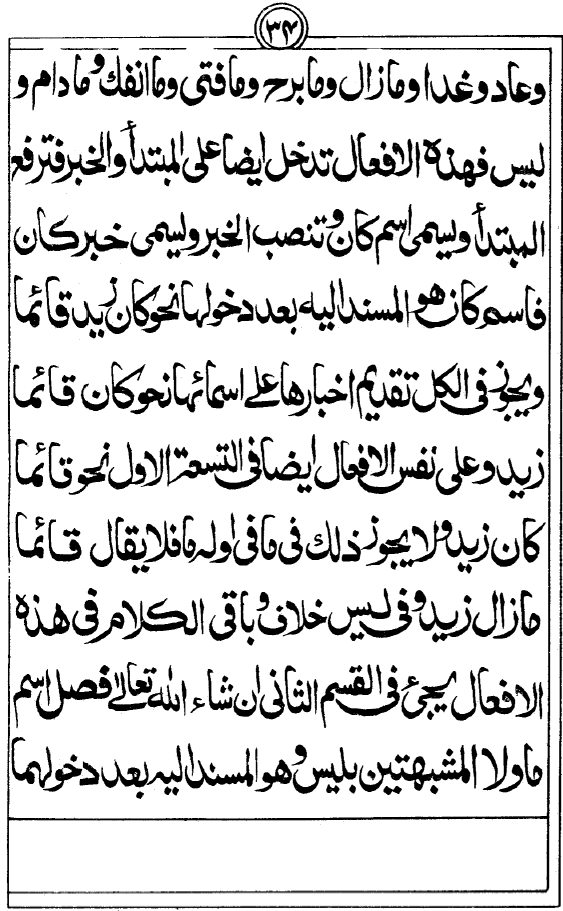 ۳۴
وعاد وغدا ومازال ومابرح ومافتی وماانفك ومادام و
لیس فهذه الافعال تدخل ایضا علی المبتدأ والخبر فترفع
المبتدأ ویسمی اسم کان وتنصب الخبر ویسمی خبر کان
فاسم کان هو المسند الیه بعد دخولها نحو کان زید قائما
ویجوز فی الکل تقدیم اخبارها علی اسمائها نحو کان قائما
زید وعلی نفس الافعال ایضا فی التسعة الاول نحو قائما
کان زید ولا یجوز ذلك فی ما فی اوله ما فلا یقال قائما
مازال زید وفی لیس خلاف وباقی الکلام فی هذه
الافعال یجیٔ فی القسم الثانی ان شاء الله تعالی فصل اسم
ما ولا المشبهتین بلیس وهو المسند الیه بعد دخولهما